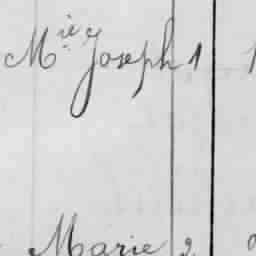 Mie Joseph 1
Marie 2